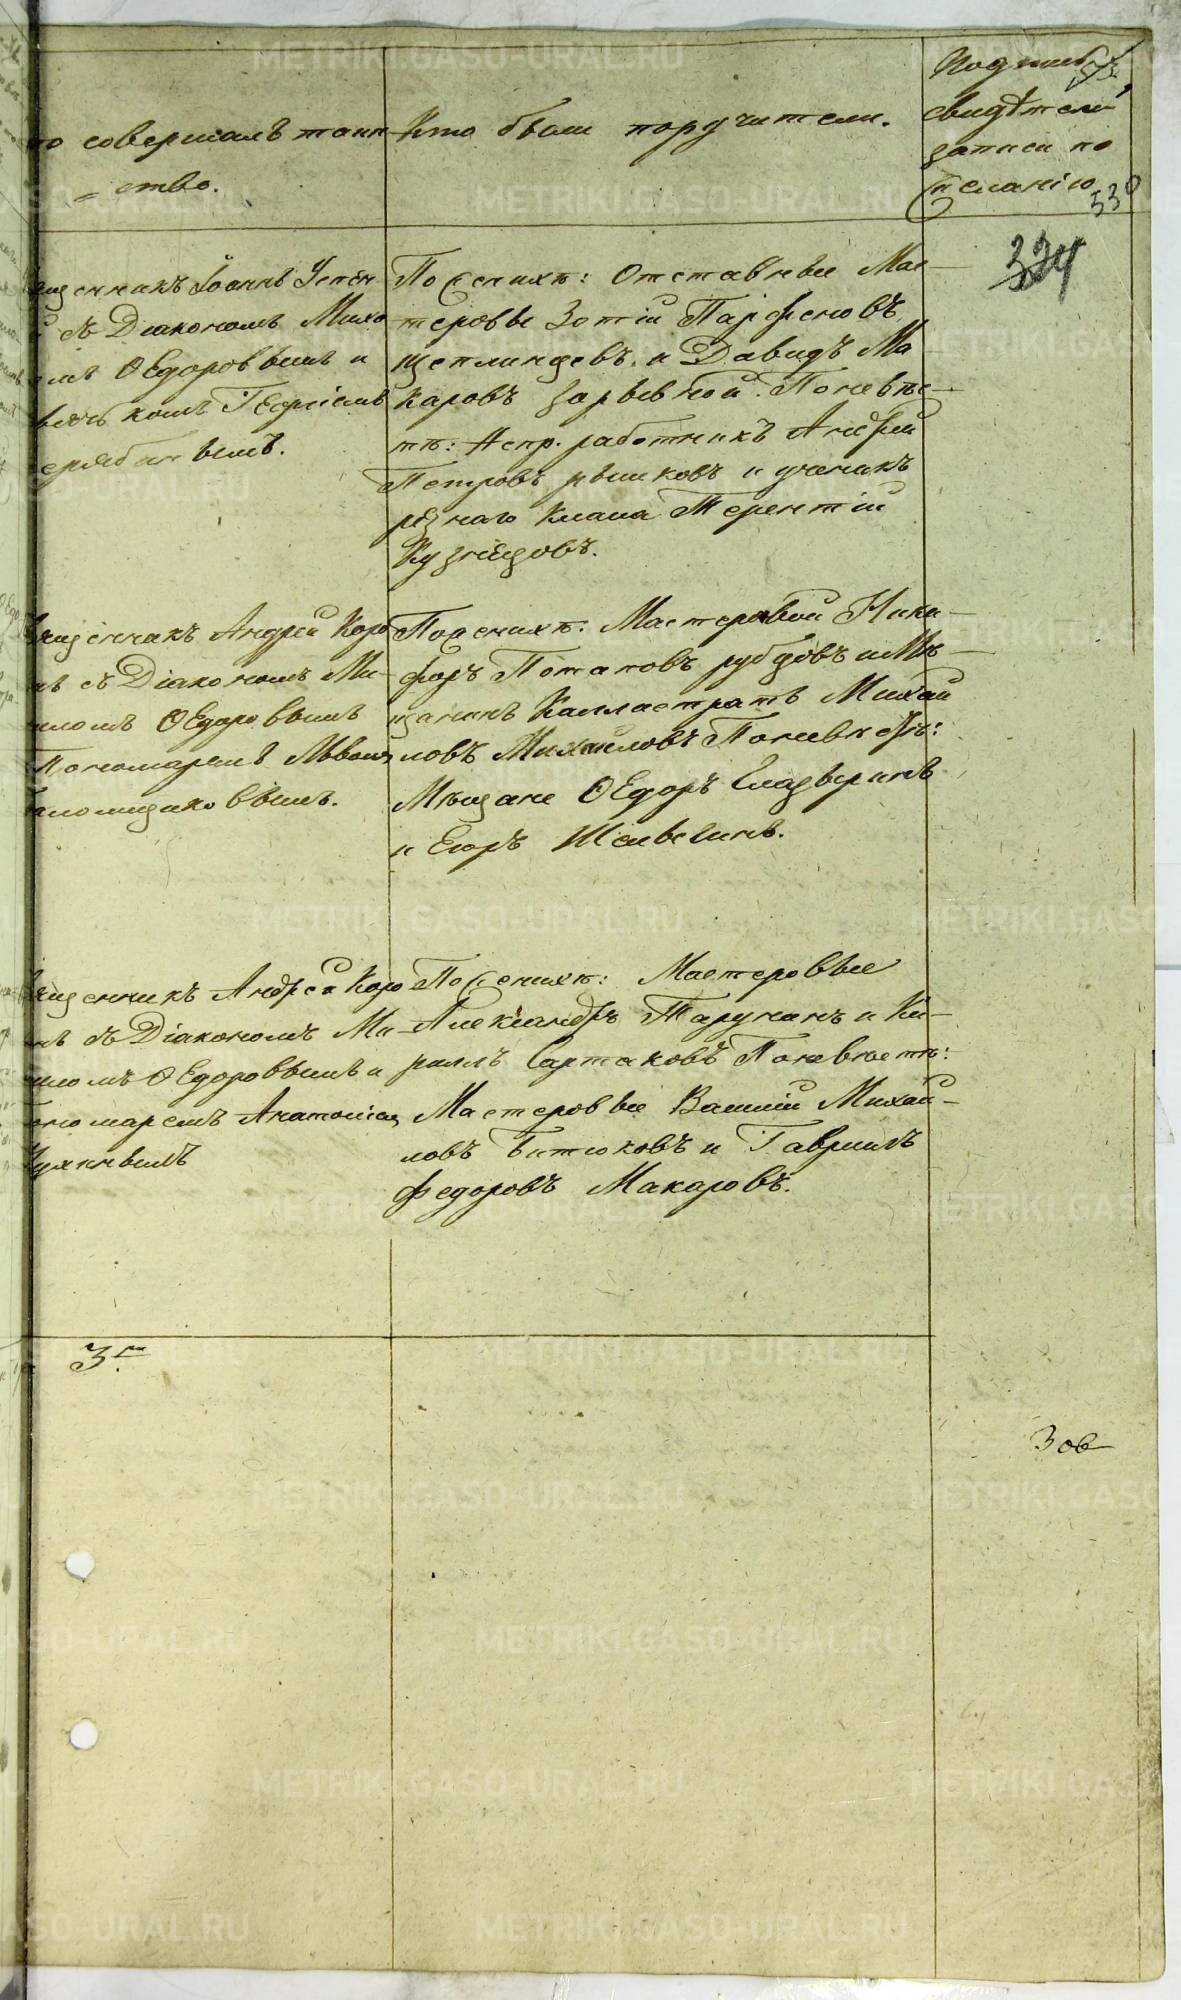 то совершалъ таин
= ство.
Кто были поручители.
Подпись
свидѣтелей
записи по
желанію
530
334
щенникъ Іоаннъ Успен
й съ Діакономъ Миха
омъ Ѳедоровымъ и
комъ Георгіемъ
вымъ.
По женихѣ: Отставные Мас-
теровые Зотій Парфеновъ
Щетлинцевъ и Давидъ Ма
каровъ Зарывной. По невѣс-
тѣ: Непр. работникъ Андрей
Петровъ рышковъ и ученикъ
рѣзнаго класа Терентій
Кузнецовъ.
ященникъ Андрей Коро
нъ съ Діакономъ Ми-
иломъ Ѳедоровымъ
Пономаремъ Львомъ
вымъ.
По женихѣ: Мастеровой Ники-
форъ Потаповъ рубцовъ и Мѣ-
щанинъ Каллистратъ Михай
ловъ Михайловъ По невѣстѣ:
Мѣщане Ѳедоръ Гладверинъ
и Егоръ Шевелинъ.
ященникъ Андрей Коро
нъ съ Діакономъ Ми-
иломъ Ѳедоровымъ и
ономаремъ Анатоліем
По женихѣ: Мастеровые
Александръ Тарунинъ и Ки-
риллъ Сартаковъ По невѣстѣ:
Мастеровые Василій Михай-
ловъ Битюковъ и Гавриилъ
Федоровъ Макаровъ.
3.
3 ов
METRIKI.GASO-URAL.RU